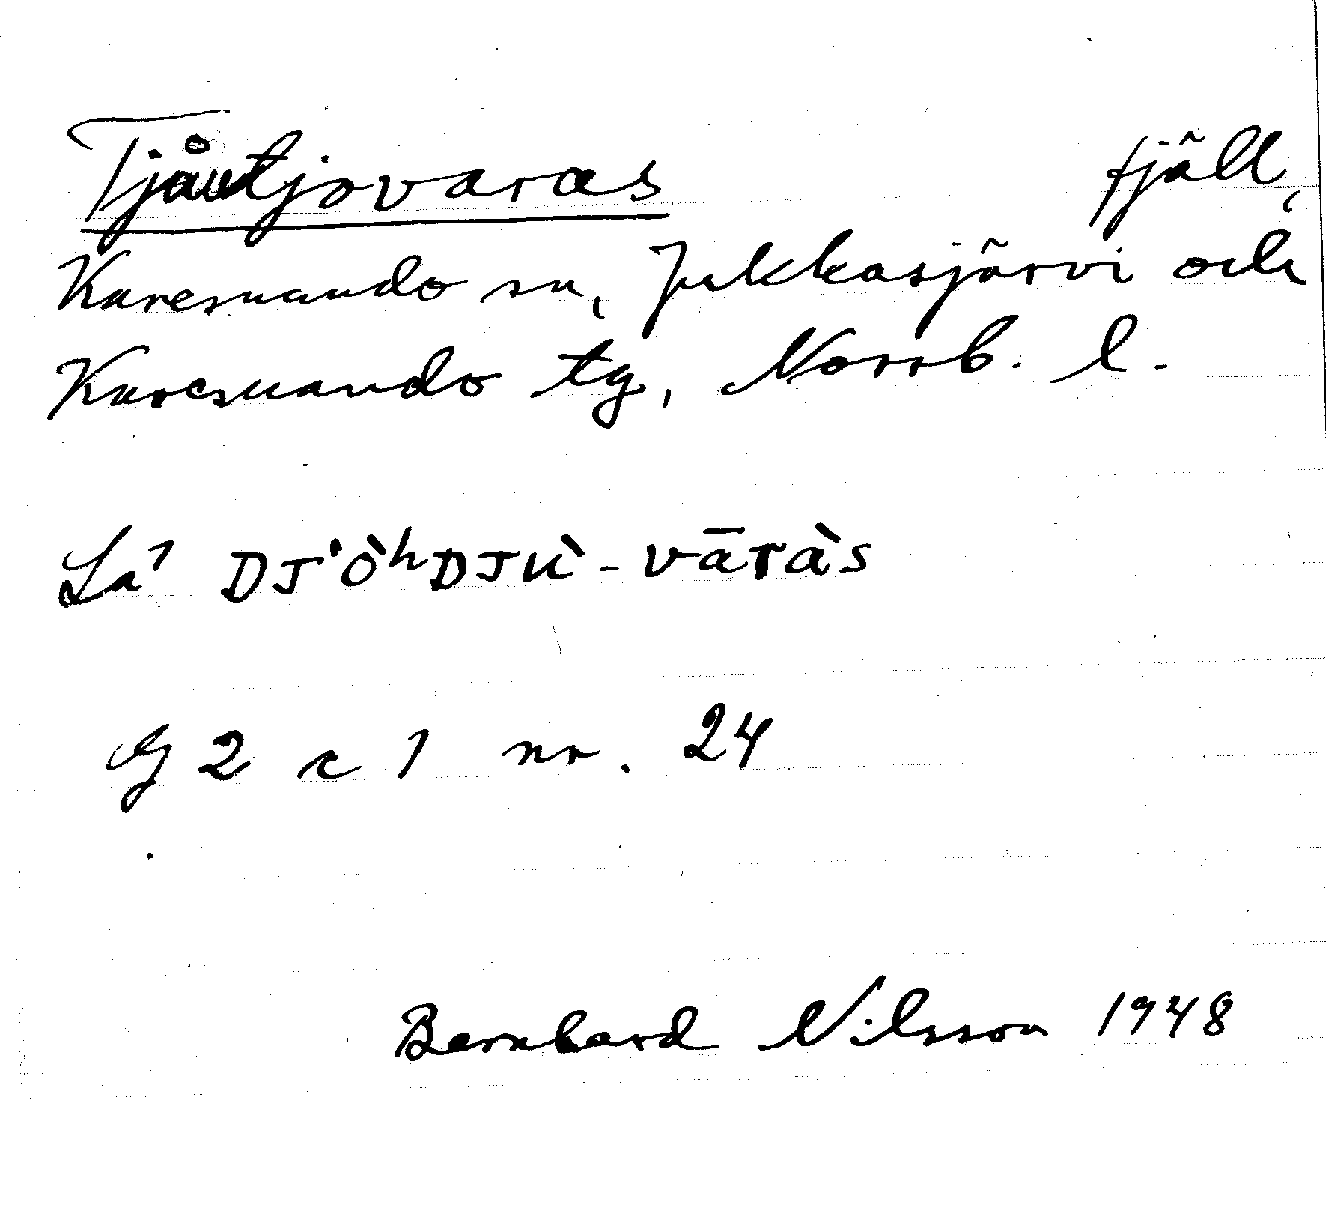 Tjåutjovaras fjäll,
Karesuando sn, Jukkasjärvi och
Karesuando tg, Norrb. l.
La1 DJ'ò̀hDJU̇̀-vāràs
G 2 c 1 nr. 24
Bernhard Nilsson 1948